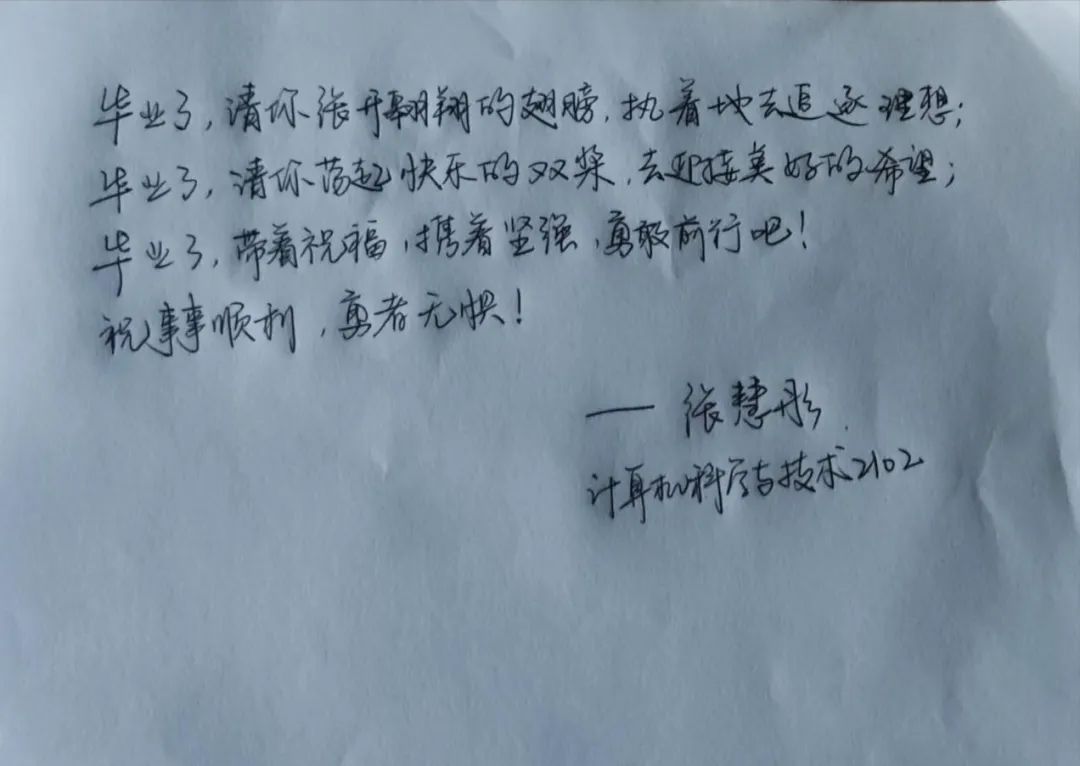 毕业了,请你张开翱翔的翅膀,执着地去追逐理想;
毕业了,请你荡起快乐的双桨,去迎接美好的希望;
毕业了,带着祝福,携着坚强,勇敢前行吧!
祝事事顺利,勇者无惧!
—— 张慧彤
计算机科学与技术2102